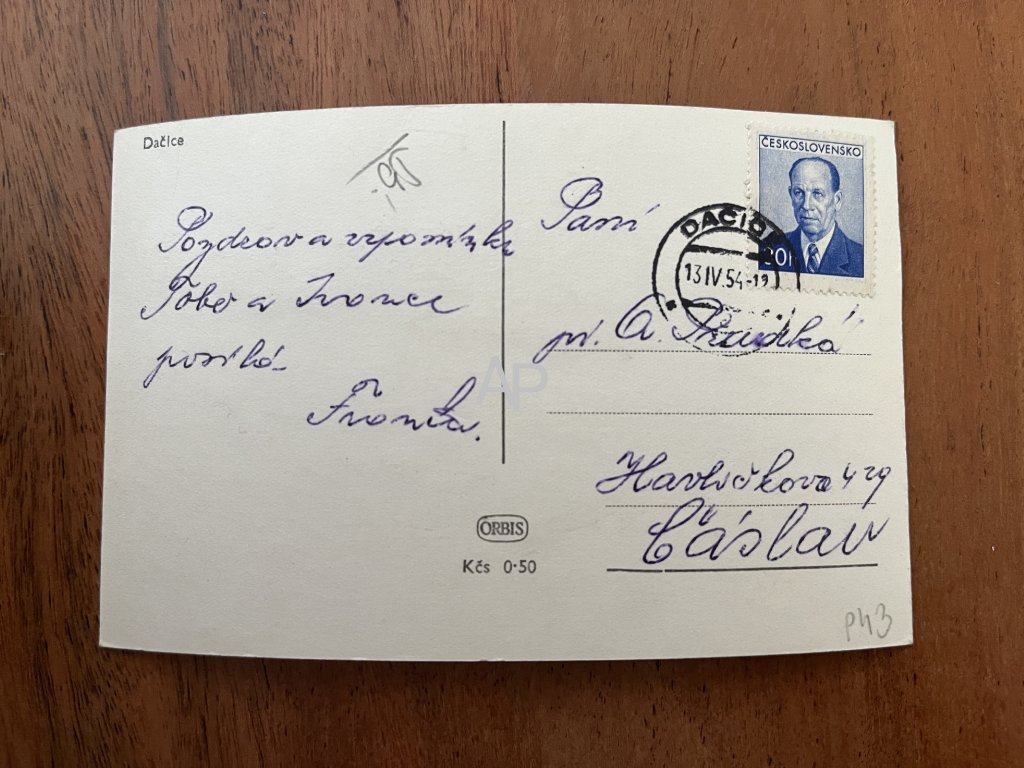 Dačice
Pozdrav a vzpomínku
Tobě a Ivance
posílá
Franta.
ORBIS
Kčs 0·50
ČESKOSLOVENSKO
DAČICE
13 IV. 54-19
Paní
pí. A.
Havlíčkova 429
Čáslav
AP
P43